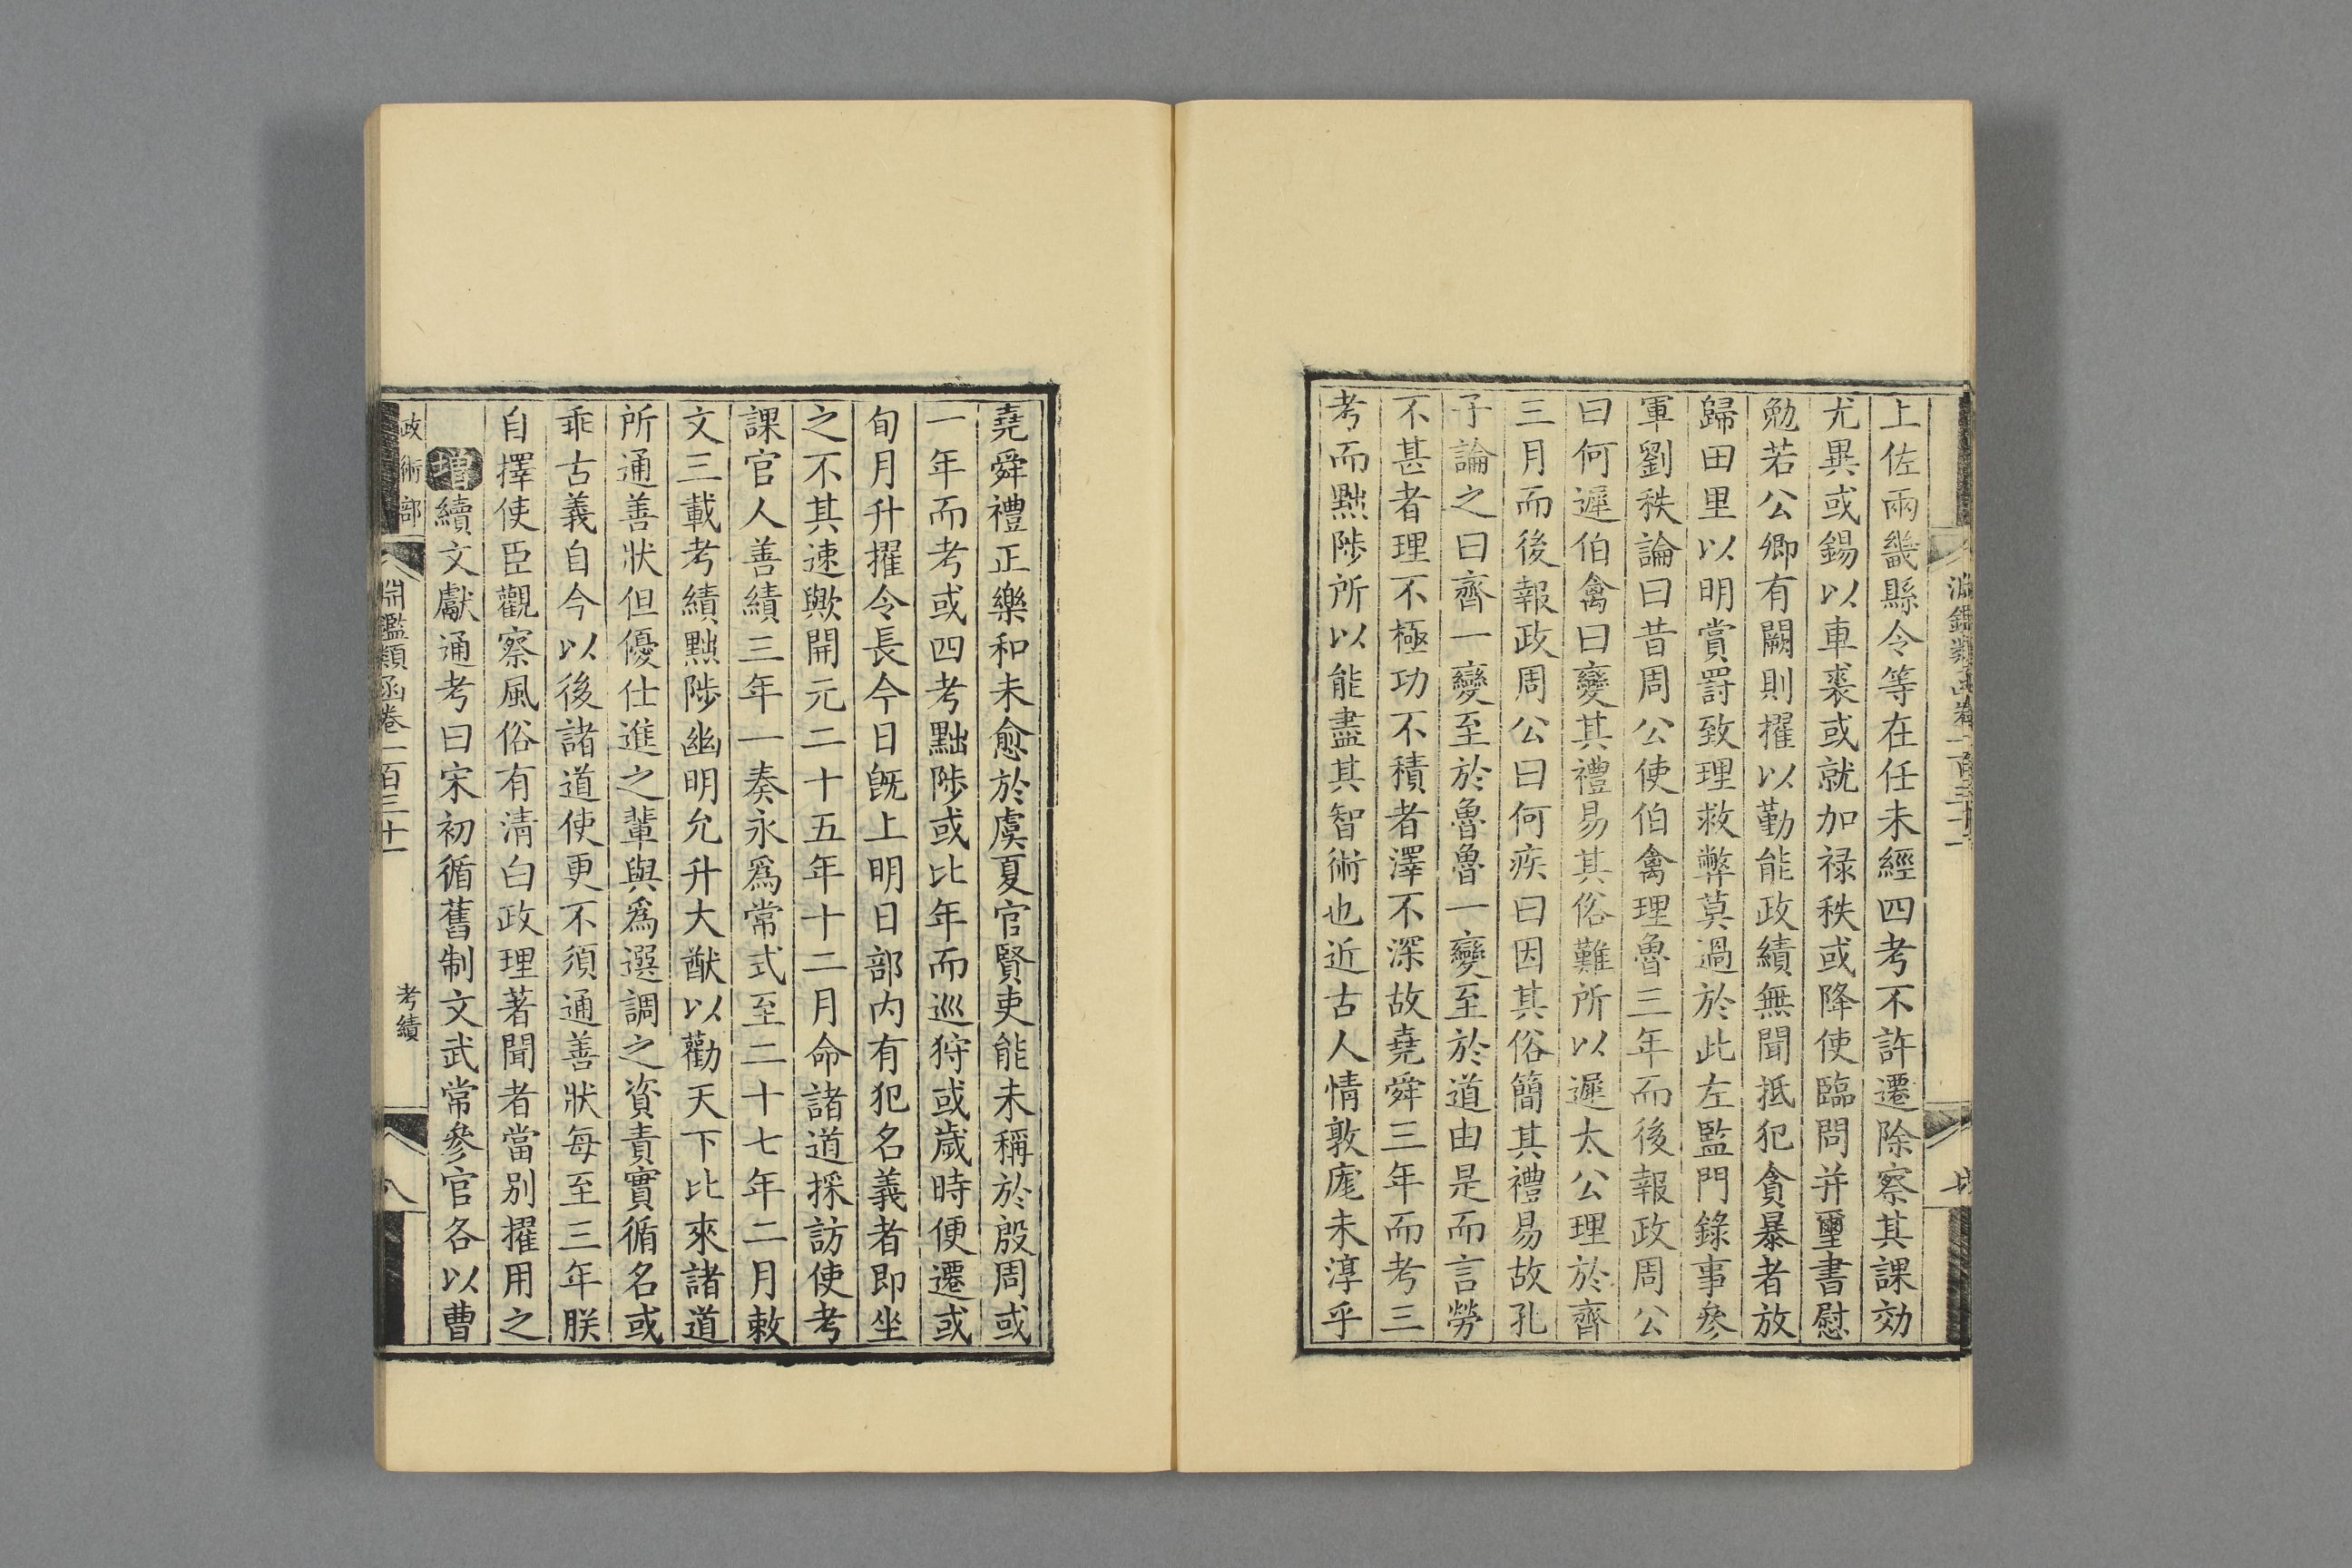 上佐兩畿縣令等在任未經四考不許遷除察其課効
尤異或錫以車裘或就加祿秩或降使臨問并璽書慰
勉若公卿有闕則擢以勤能政績無聞抵犯貪暴者放
歸田里以明賞罸致理救弊莫過於此左監門錄事參
軍劉秩論曰昔周公使伯禽理魯三年而後報政周公
曰何遲伯禽曰變其禮易其俗難所以遲太公理於齊
三月而後報政周公曰何疾曰因其俗簡其禮易故孔
子論之曰齊一變至於魯魯一變至於道由是而言勞
不甚者理不極功不積者澤不深故堯舜三年而考三
考而黜陟所以能盡其智術也近古人情敦庬未淳乎
堯舜禮正樂和未愈於虞夏官賢吏能未稱於殷周或
一年而考或四考黜陟或比年而巡狩或歲時便遷或
旬月升擢令長今日旣上明日部内有犯名義者即坐
之不其速歟開元二十五年十二月命諸道採訪使考
課官人善績三年一奏永爲常式至二十七年二月敕
文三載考績黜陟幽明允升大猷以勸天下比來諸道
所通善狀但優仕進之輩與爲選調之資責實循名或
乖古義自今以後諸道使更不須通善狀每至三年朕
自擇使臣觀察風俗有清白政理著聞者當別擢用之
增續文獻通考曰宋初循舊制文武常參官各以曹
政術部 淵鑑類函卷一百三十一 考績 八